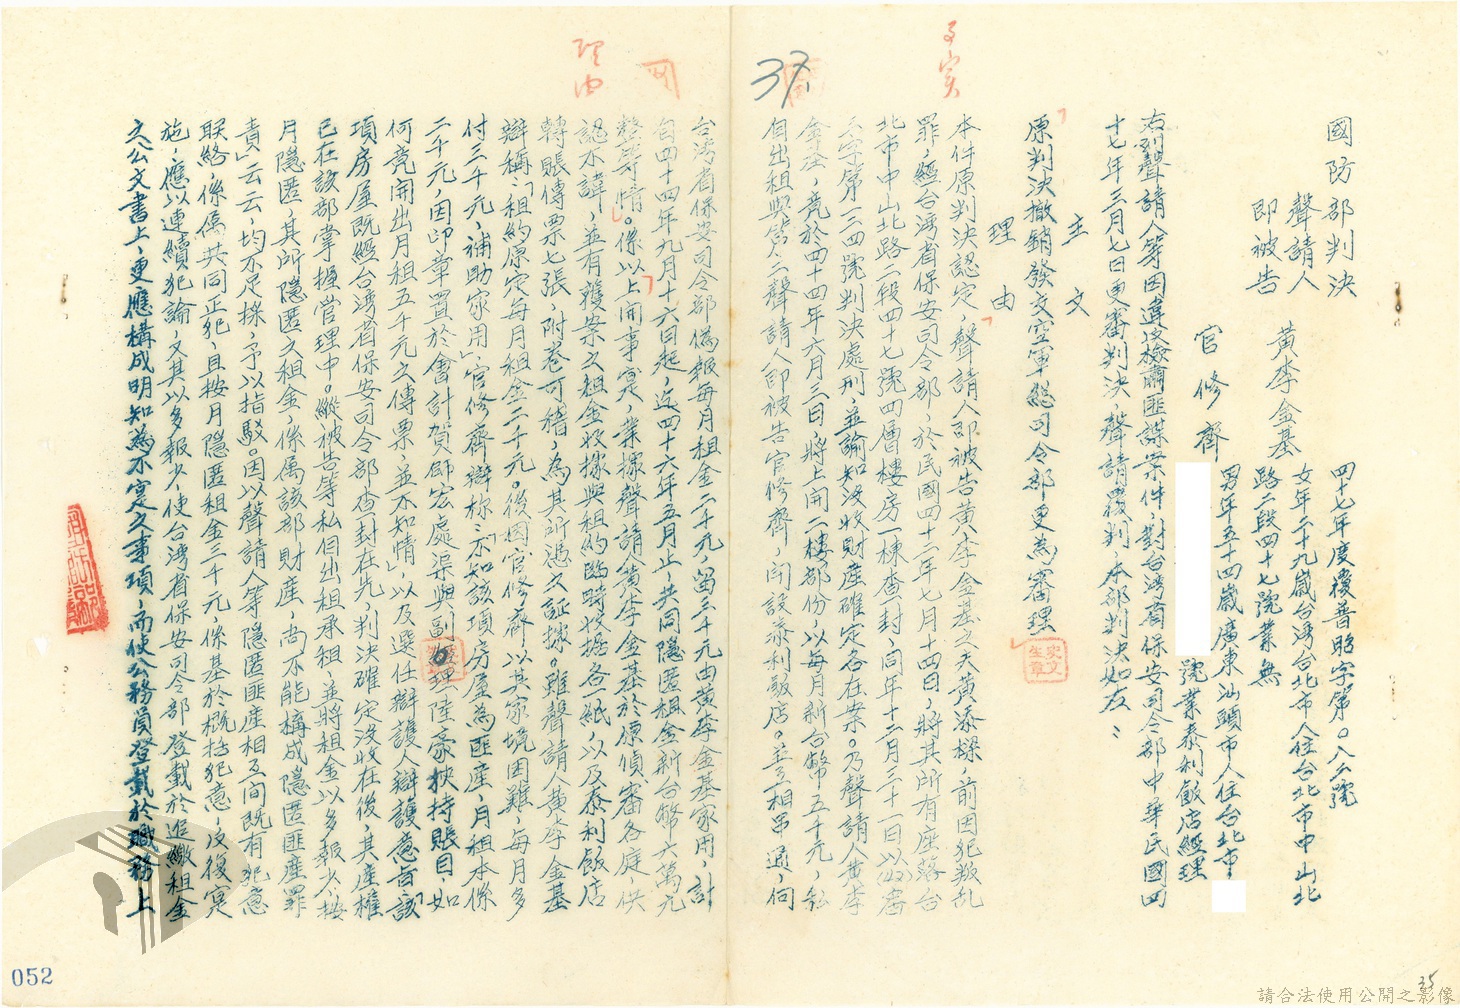 國防部判決
四十七年度覆普昭字第〇八公號
聲請人
即被告
黃李金基
女年二十九歲台灣台北市人住台北市中山北
路二段四十七號業無
官修齊
男年五十四歲廣東汕頭市人住台北市
號業泰利飯店經理
右列聲請人等因違反檢肅匪諜案件,對台灣省保安司令部中華民國四
十七年三月七日更審判決聲請覆判,本部判決如左:
主文
原判決撤銷發交空軍總司令部更為審理
理由
事實
本件原判決認定,聲請人即被告黃李金基之夫黃添樑,前因犯叛亂
罪,經台灣省保安司令部,於民國四十二年七月十四日,將其所有座落台
北市中山北路二段四十七號四層樓房一棟查封,同年十二月三十一日以
字第一三四號判決處刑,並諭知沒收財產確定各在案。乃聲請人黃李
金基,竟於四十四年六月三日將上開二樓部份,以每月新台幣五千元,私
自出租與第二聲請人即被告官修齊,開設泰利飯店。並互相串通,向
37
台灣省保安司令部偽報每月租金二千元,留三千元由黃李金基家用,計
自四十四年九月十六日起,迄四十六年五月止,共同隱匿租金新台幣六萬元
等情。係以上開事實,業據聲請人黃李金基於原偵審各庭供
認不諱,並有獲案之租金收據與租約臨時收據各一紙,以及泰利飯店
轉賬傳票七張,附卷可稽,為其所憑之証據。雖聲請人黃李金基
辯稱:「租約原定每月租金二千元。後因官修齊以其家境困難,每月多
付三千元,補助家用」,官修齊辯稱:「不知該項房屋為匪產,月租本係
二千元,因印章置於會計賀郎宏處,渠與副理陸豪挾持賬目,如
何竟開出月租五千元之傳票,並不知情」,以及選任辯護人辯護意旨「該
項房屋既經台灣省保安司令部查封在先,判決確定沒收在後,其產權
已在該部掌握管理中。縱被告等私自出租承租,並將租金以多報少,按
月隱匿,其所隱匿之租金,係屬該部財產,尚不能構成隱匿匪產罪
責」云云,均不足採,予以指駁。因以聲請人等隱匿匪產相互間既有犯意
聯絡,係屬共同正犯,且按月隱匿租金三千元,係基於概括犯意,反復實
施,應以連續犯論,又其以多報少,使台灣省保安司令部登載於追繳租金
之公文書上,更應構成明知為不實之事項,而使公務員登載於職務上
理由
052
35
請合法使用公開之影像